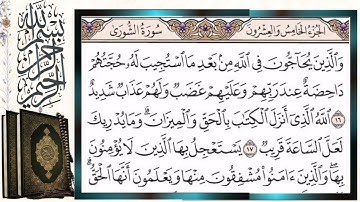 بسم الله الرحمن الرحيم
الجزء الخامس والعشرون
سورة الشورى
وَالَّذِينَ يُحَاجُّونَ فِي اللَّهِ مِنْ بَعْدِ مَا اسْتُجِيبَ لَهُ حُجَّتُهُمْ
دَاحِضَةٌ عِندَ رَبِّهِمْ وَعَلَيْهِمْ غَضَبٌ وَلَهُمْ عَذَابٌ شَدِيدٌ
١٦ اللَّهُ الَّذِي أَنزَلَ الْكِتَابَ بِالْحَقِّ وَالْمِيزَانَ ۗ وَمَا يُدْرِيكَ
لَعَلَّ السَّاعَةَ قَرِيبٌ ١٧ يَسْتَعْجِلُ بِهَا الَّذِينَ لَا يُؤْمِنُونَ
بِهَا ۖ وَالَّذِينَ آمَنُوا مُشْفِقُونَ مِنْهَا وَيَعْلَمُونَ أَنَّهَا الْحَقُّ ۗ